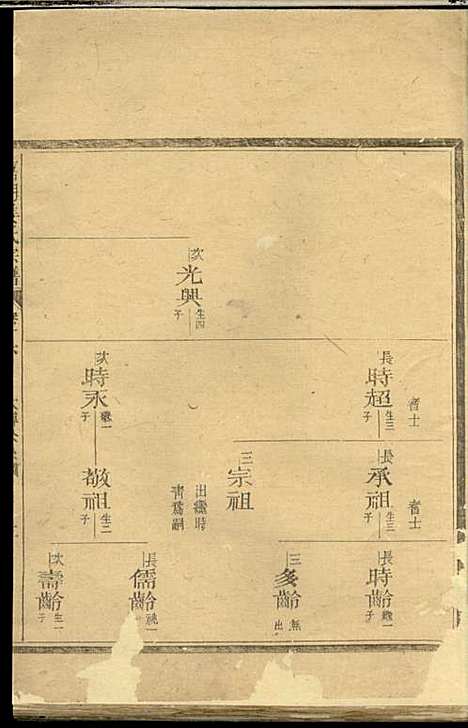 次
光興
生四子
長
時超
生三子
耆士
次
時永
繼一子
長
承祖
生三子
耆士
三
宗祖
出繼時
青爲嗣
敬祖
生二子
長
時齡
繼一子
三
多齡
無出
長
儒齡
祧一
次
壽齡
生一子